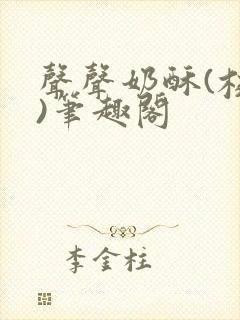 聲聲奶酥(校
)筆趣閣
李金柱